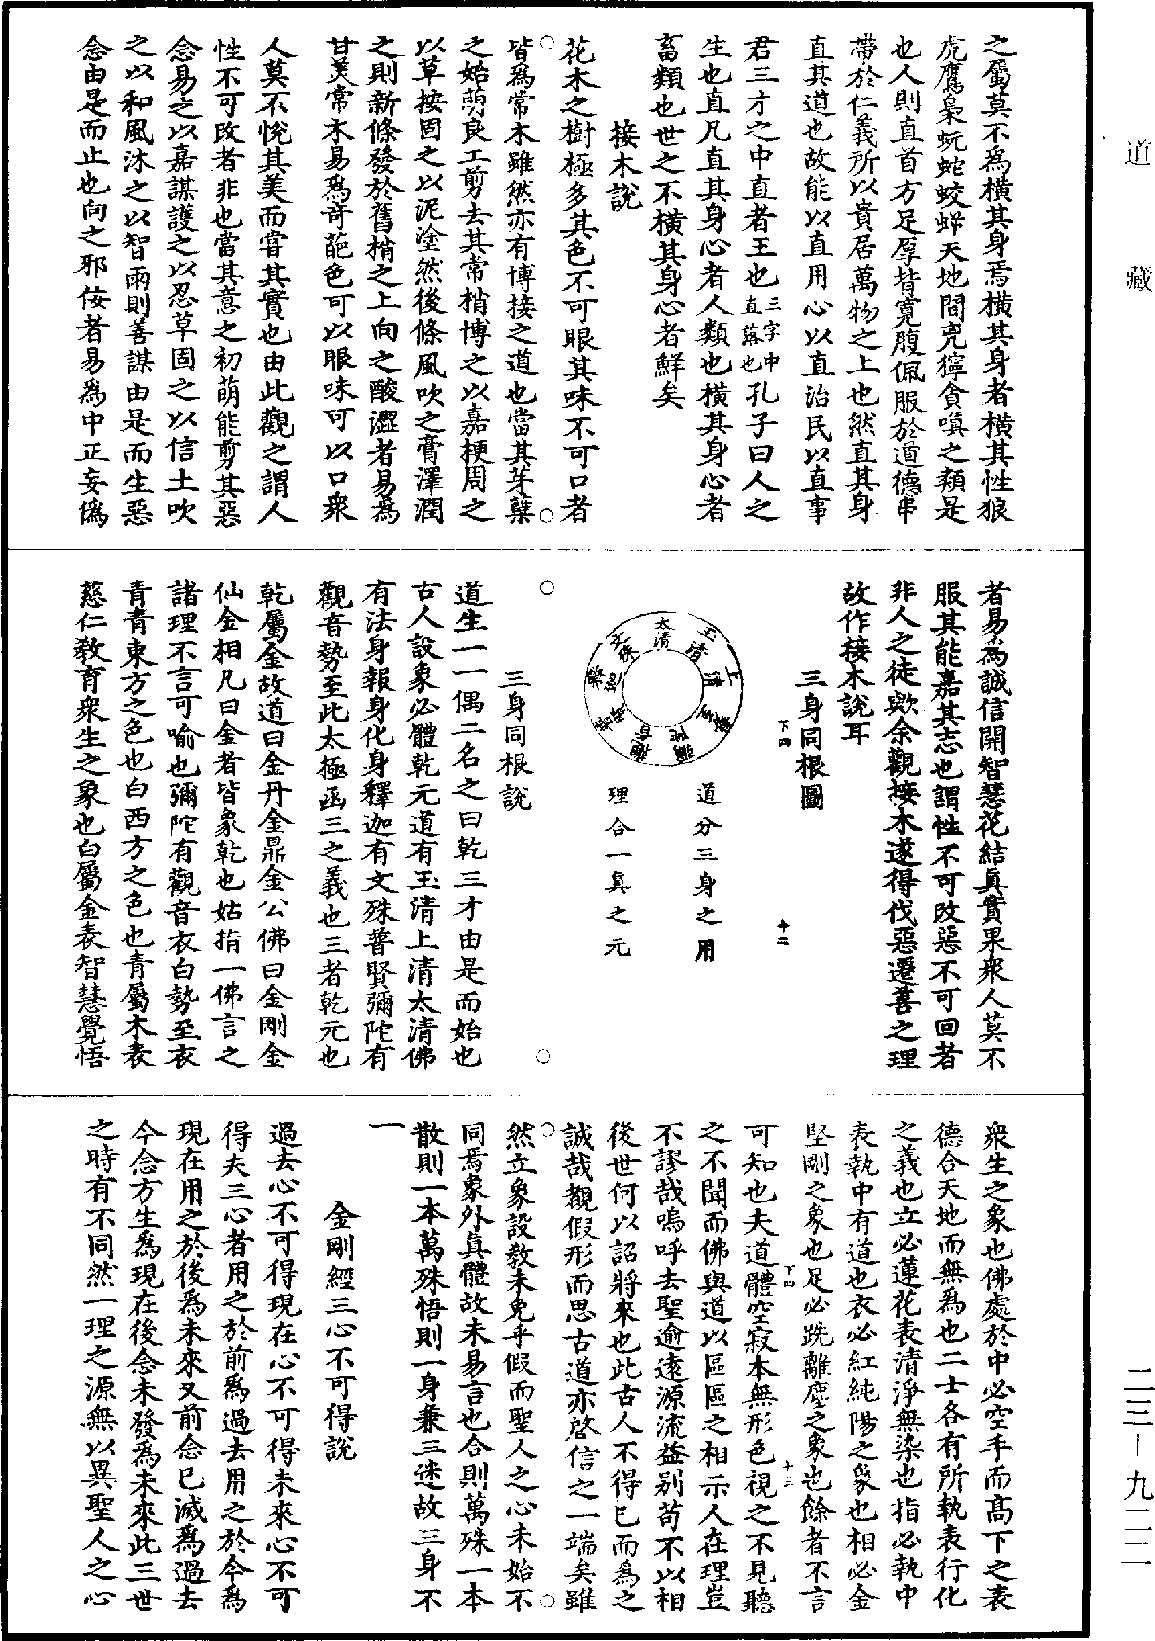 之屬莫不爲橫其身焉橫其身者橫其性狼
虎鷹梟蚖蛇蛟蟒天地間兇獰貪嗔之類是
也人則直首方足厚背寬腹佩服於道德串
帶於仁義所以貴居萬物之上也然直其身
直其道也故能以直用心以直治民以直事
君三才之中直者王也三字中直落也孔子曰人之
生也直凡直其身心者人類也橫其身心者
畜類也世之不橫其身心者鮮矣
接木說
花木之樹極多其色不可眼其味不可口者
皆爲常木雖然亦有博接之道也當其芽蘖
之始萌良工剪去其常梢博之以嘉梗周之
以草按固之以泥塗然後條風吹之膏澤潤
之則新條發於舊梢之上向之酸澀者易爲
甘美常木易爲奇葩色可以眼味可以口衆
人莫不悅其美而嘗其實也由此觀之謂人
性不可改者非也當其意之初萌能剪其惡
念易之以嘉謀護之以忍草固之以信土吹
之以和風沐之以智雨則善謀由是而生惡
念由是而止也向之邪佞者易爲中正妄僞
者易爲誠信開智慧花結眞實果衆人莫不
服其能嘉其志也謂性不可改惡不可回者
非人之徒歟余觀接木遂得伐惡遷善之理
故作接木說耳
三身同根圖
下四
十二
太清
玉清
上清
文殊
普賢
彌陀
觀音
勢至
道分三身之用
理合一眞之元
三身同根說
道生一一偶二名之曰乾三才由是而始也
古人設象必體乾元道有玉清上清太清佛
有法身報身化身釋迦有文殊普賢彌陀有
觀音勢至此太極函三之義也三者乾元也
乾屬金故道曰金丹金鼎金公佛曰金剛金
仙金相凡曰金者皆象乾也姑指一佛言之
諸理不言可喻也彌陀有觀音衣白勢至衣
青青東方之色也白西方之色也青屬木表
慈仁教育衆生之象也白屬金表智慧覺悟
衆生之象也佛處於中必空手而高下之表
德合天地而無爲也二士各有所執表行化
之義也立必蓮花表清淨無染也指必執中
表執中有道也衣必紅純陽之象也相必金
堅剛之象也足必跣離塵之象也餘者不言
下四
十三
可知也夫道體空寂本無形色視之不見聽
之不聞而佛與道以區區之相示人在理豈
不謬哉嗚呼去聖逾遠源流益别苟不以相
後世何以詔將來也此古人不得已而爲之
誠哉觀假形而思古道亦啓信之一端矣雖
然立象設教未免乎假而聖人之心未始不
同焉象外眞體故未易言也合則萬殊一本
散則一本萬殊悟則一身兼三迷故三身不
一
金剛經三心不可得說
過去心不可得現在心不可得未來心不可
得夫三心者用之於前爲過去用之於今爲
現在用之於後爲未來又前念已滅爲過去
今念方生爲現在後念未發爲未來此三世
之時有不同然一理之源無以異聖人之心
道藏
二三—九二二